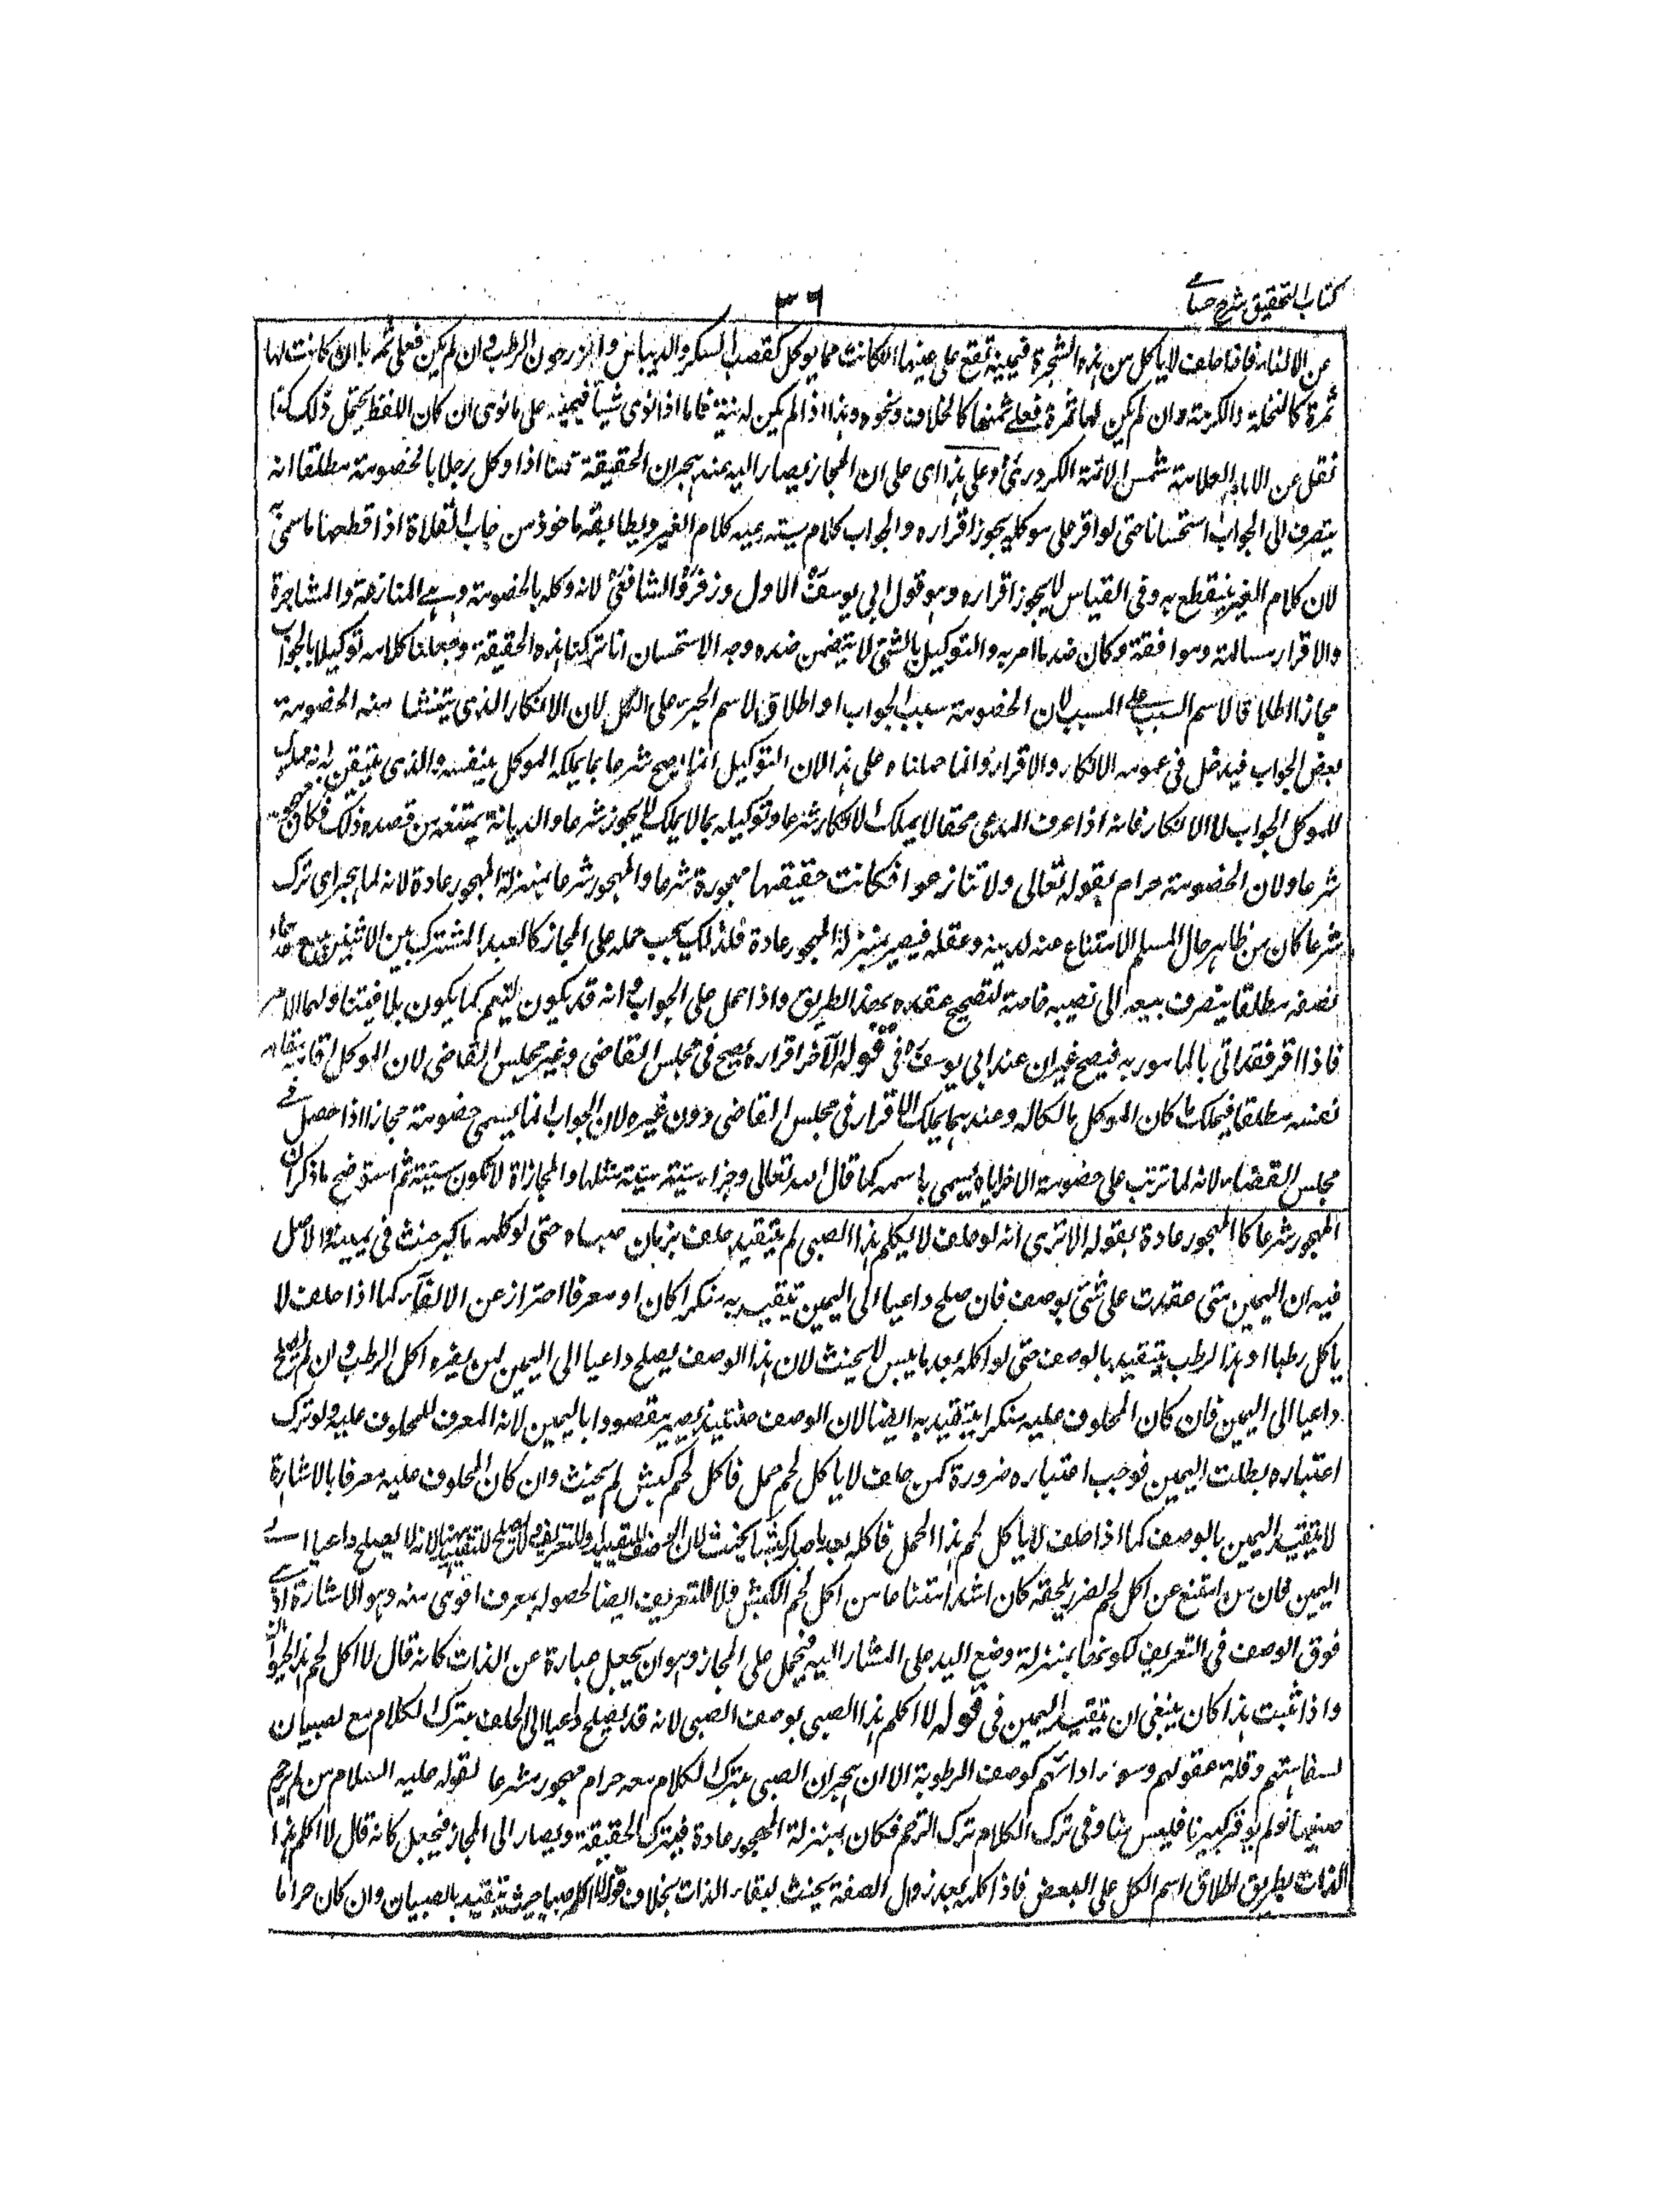 كتاب التحقيق شرح حسامے
٣٦
عن الالغاء فاذا حلف لا ياكل من هذه الشجرة فيمينه تقع على عينها ان كانت مما يوكل كقصب السكر والريباس والجزر دون الرطب وان لم يكن فعلى ثمرها ان كانت لها
ثمرة كالنخلة والكرمة وان لم يكن لها ثمرة فعلى ثمنها كالخلاف ونحوه وهذا اذا لم يكن له نية فاما اذا نوى شيا فيمينه على ما نوى ان كان اللفظ يحتمل ذلك كذا
نقل عن الامام العلامة شمس الائمة الكردرى وعلى هذا اى على ان المجاز يصار اليه عند هجران الحقيقة قلنا اذا وكل رجلا بالخصومة مطلقا انه
يتصرف الى الجواب استحسانا حتى لو اقر على موكله يجوز اقراره والجواب كلام يستدعيه كلام الغير ويطابقه ماخوذ من جاب الفلاة اذا قطعها ما سمى به
لان كلام الغير ينقطع به وفى القياس لا يجوز اقراره وهو قول ابى يوسف الاول وزفر والشافعى لانه وكله بالخصومة وهے المنازعة والمشاجرة
والاقرار مسالمة وموافقة وكان ضد ما امر به والتوكيل بالشئ لا يتضمن ضده وجه الاستحسان انا تركنا هذه الحقيقة وجعلنا كلامه توكيلا بالجواب
مجازا اطلاقا لاسم السبب على المسبب لان الخصومة سبب الجواب او اطلاق لاسم الجزء على الكل لان الانكار الذى ينشا منه الخصومة
بعض الجواب فيدخل فى عموم الانكار والاقرار وانما حملناه على هذا لان التوكيل انما يصح شرعا بما يملكه الموكل بنفسه والذى يتيقن به انه مملوك
للموكل الجواب لا الانكار فانه اذا عرف المدعى محقا لا يملك الانكار شرعا وتوكيله بما لا يملك لا يجوز شرعا والديانة تمنعه من قصده ذلك فكان مهجورة
شرعا ولان الخصومة حرام بقوله تعالى ولا تنازعوا فكانت حقيقتها مهجورة شرعا والمهجور شرعا بمنزلة المهجور عادة لانه لما هجر اى ترك
شرعا كان من ظاهر حال المسلم الامتناع عنه لدينه وعقله فيصير بمنزلة المهجور عادة فلذلك يجب حمله على المجاز كالعبد المشترك بين الاثنين يبيع احدهما
نصفه مطلقا ينصرف بيعه الى نصيبه خاصة لتصحيح عقده بهذا الطريق واذا حمل على الجواب وانه قد يكون بنعم كما يكون بلا فيتناولهما الامر
فاذا اقر فقد اتى بالمامور به فيصح غير ان عند ابى يوسف فى قوله الآخر اقراره يصح فى مجلس القاضى وغير مجلس القاضى لان الموكل اقامه مقام
نفسه مطلقا فيملك ما كان الموكل مالكا له وعندهما يملك الاقرار فى مجلس القاضى دون غيره لان الجواب انما يسمى خصومة مجازا اذا حصل فے
مجلس القضاء لانه لما ترتب على خصومة الاخر اياه يسمى باسمه كما قال الله تعالى وجزاء سيئة سيئة مثلها والمجازاة لا تكون سيئة ثم استوضح ما ذكر ان
المهجور شرعا كالمهجور عادة بقوله الا ترى انه لو حلف لا يكلم هذا الصبى لم يتقيد حلف بزمان صباه حتى لو كلمه ما كبر حنث فى يمينه والاصل
فيه ان اليمين متى عقدت على شئ بوصف فان صلح داعيا الى اليمين تتقيد به منكرا كان او معرفا احتراز عن الالغاء كما اذا حلف لا
ياكل رطبا او هذا الرطب يتقيد بالوصف حتى لو اكله بعد ما يبس لا يحنث لان هذا الوصف يصلح داعيا الى اليمين لمن يضره اكل الرطب وان لم يصلح
داعيا الى اليمين فان كان المحلوف عليه منكرا يتقيد به ايضا لان الوصف حينئذ يصير مقصودا باليمين لانه المعرف للمحلوف عليه ولو ترك
اعتباره بطلت اليمين فوجب اعتباره ضرورة كمن حلف لا ياكل لحم حمل فاكل لحم كبش لم يحنث وان كان المحلوف عليه معرفا بالاشارة
لا يتقيد اليمين بالوصف كما اذا حلف لا ياكل لحم هذا الحمل فاكله بعد ما صار كبشا يحنث لان الوصف للتقييد او للتعريف ولا يصلح للتقييد هنا لانه لا يصلح داعيا الے
اليمين فان من امتنع عن اكل لحم لضرر يلحقه كان اشد امتناعا من اكل لحم الكبش فلا للتعريف ايضا لحصوله بمعرف اقوى منه وهو الاشارة اذ هے
فوق الوصف فى التعريف لكونها بمنزلة وضع اليد على المشار اليه فيحمل على المجاز وهو ان يجعل عبارة عن الذات كانه قال لا اكل لحم هذا الحيوان
واذا ثبت هذا كان ينبغى ان يتقيد اليمين فى قوله لا اكلم هذا الصبى بوصف الصبى لانه قد يصلح داعيا الى الحلف بترك الكلام مع الصبيان
لسفاهتهم وقلة عقولهم وسوء ادابهم كوصف الرطوبة الا ان هجران الصبى بترك الكلام معه حرام مهجور شرعا لقوله عليه السلام من لم يرحم
صغيرنا ولم يوقر كبيرنا فليس منا وفى ترك الكلام ترك الترحم فكان بمنزلة المهجور عادة فيترك الحقيقة ويصار الى المجاز فيجعل كانه قال لا اكلم هذا
الذات بطريق اطلاق اسم الكل على البعض فاذا كلمه بعد زوال الصفة يحنث لبقاء الذات بخلاف قوله لا اكلم صبيا حيث يتقيد بالصبيان وان كان حراما